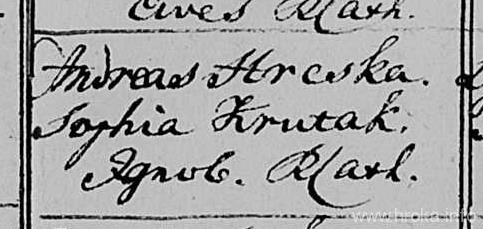 Cives R Cath.
Andreas Hreska.
Sophia Krutak.
Ignob. R Cath.
www.hroka.info